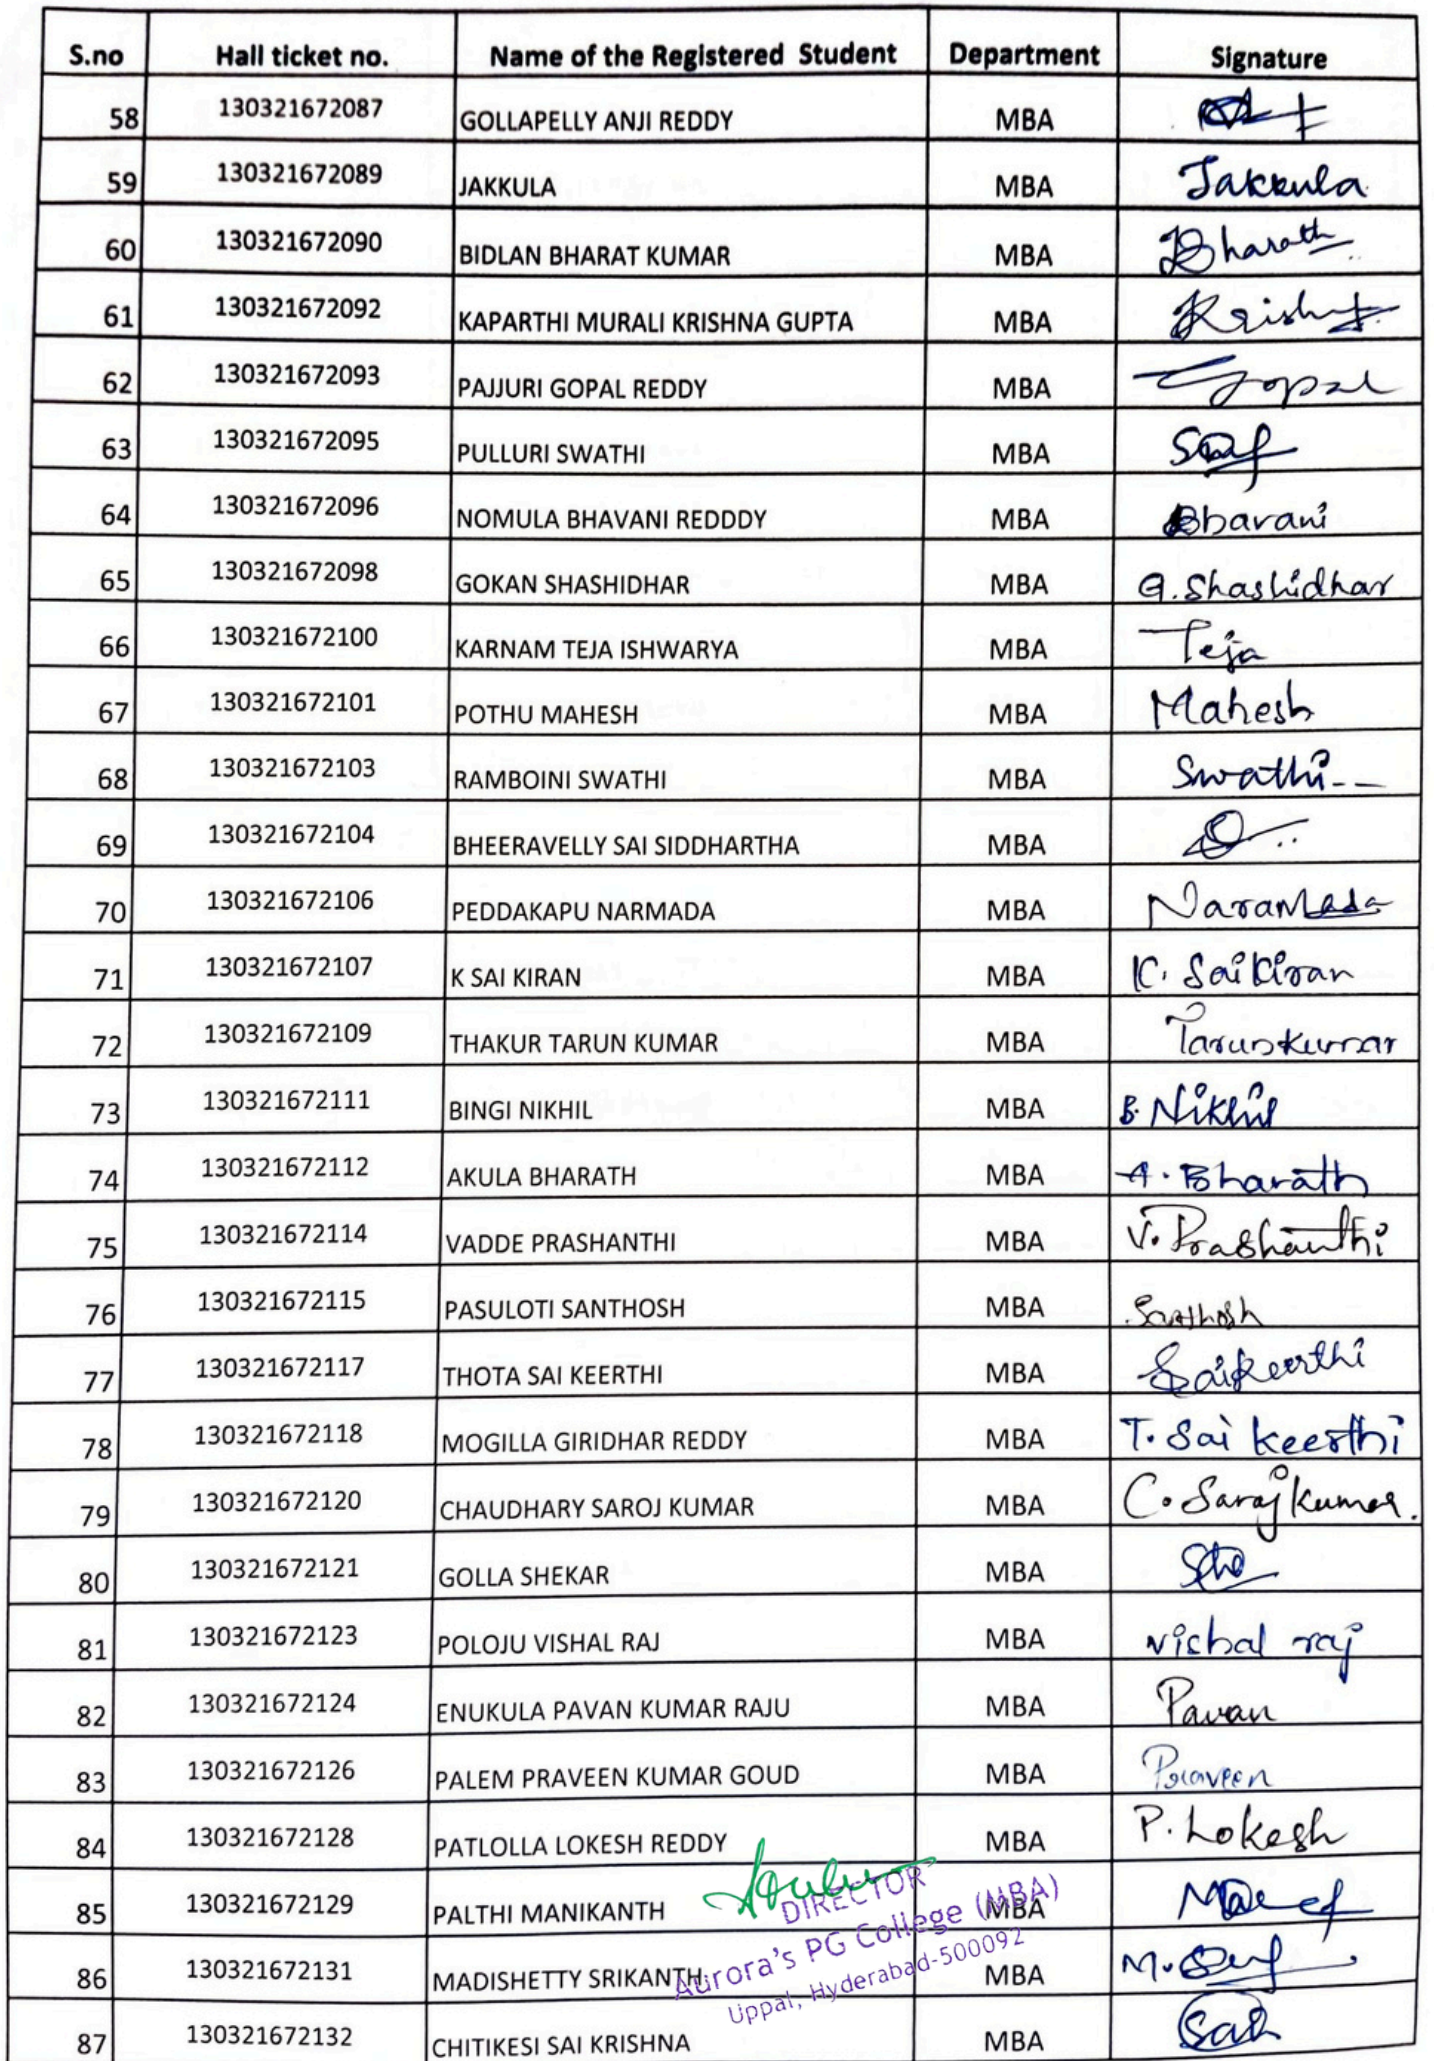 S.no Hall ticket no. Name of the Registered Student Department Signature
58 130321672087 GOLLAPELLY ANJI REDDY MBA
59 130321672089 JAKKULA MBA Jakkula
60 130321672090 BIDLAN BHARAT KUMAR MBA Bharath
61 130321672092 KAPARTHI MURALI KRISHNA GUPTA MBA
62 130321672093 PAJJURI GOPAL REDDY MBA Gopal
63 130321672095 PULLURI SWATHI MBA
64 130321672096 NOMULA BHAVANI REDDDY MBA Bhavani
65 130321672098 GOKAN SHASHIDHAR MBA G. Shashidhar
66 130321672100 KARNAM TEJA ISHWARYA MBA Teja
67 130321672101 POTHU MAHESH MBA Mahesh
68 130321672103 RAMBOINI SWATHI MBA Swathi
69 130321672104 BHEERAVELLY SAI SIDDHARTHA MBA
70 130321672106 PEDDAKAPU NARMADA MBA Naramada
71 130321672107 K SAI KIRAN MBA K. Sai Kiran
72 130321672109 THAKUR TARUN KUMAR MBA Tarunkumar
73 130321672111 BINGI NIKHIL MBA B. Nikhil
74 130321672112 AKULA BHARATH MBA A. Bharath
75 130321672114 VADDE PRASHANTHI MBA V. Prashanthi
76 130321672115 PASULOTI SANTHOSH MBA Santhosh
77 130321672117 THOTA SAI KEERTHI MBA Saikeerthi
78 130321672118 MOGILLA GIRIDHAR REDDY MBA T. Sai Keerthi
79 130321672120 CHAUDHARY SAROJ KUMAR MBA C. Saroj Kumar.
80 130321672121 GOLLA SHEKAR MBA
81 130321672123 POLOJU VISHAL RAJ MBA Vishal raj
82 130321672124 ENUKULA PAVAN KUMAR RAJU MBA Pavan
83 130321672126 PALEM PRAVEEN KUMAR GOUD MBA Praveen
84 130321672128 PATLOLLA LOKESH REDDY MBA P. Lokesh
85 130321672129 PALTHI MANIKANTH MBA
86 130321672131 MADISHETTY SRIKANTH MBA
87 130321672132 CHITIKESI SAI KRISHNA MBA Sai
DIRECTOR
Aurora's PG College (MBA)
Uppal, Hyderabad-500092